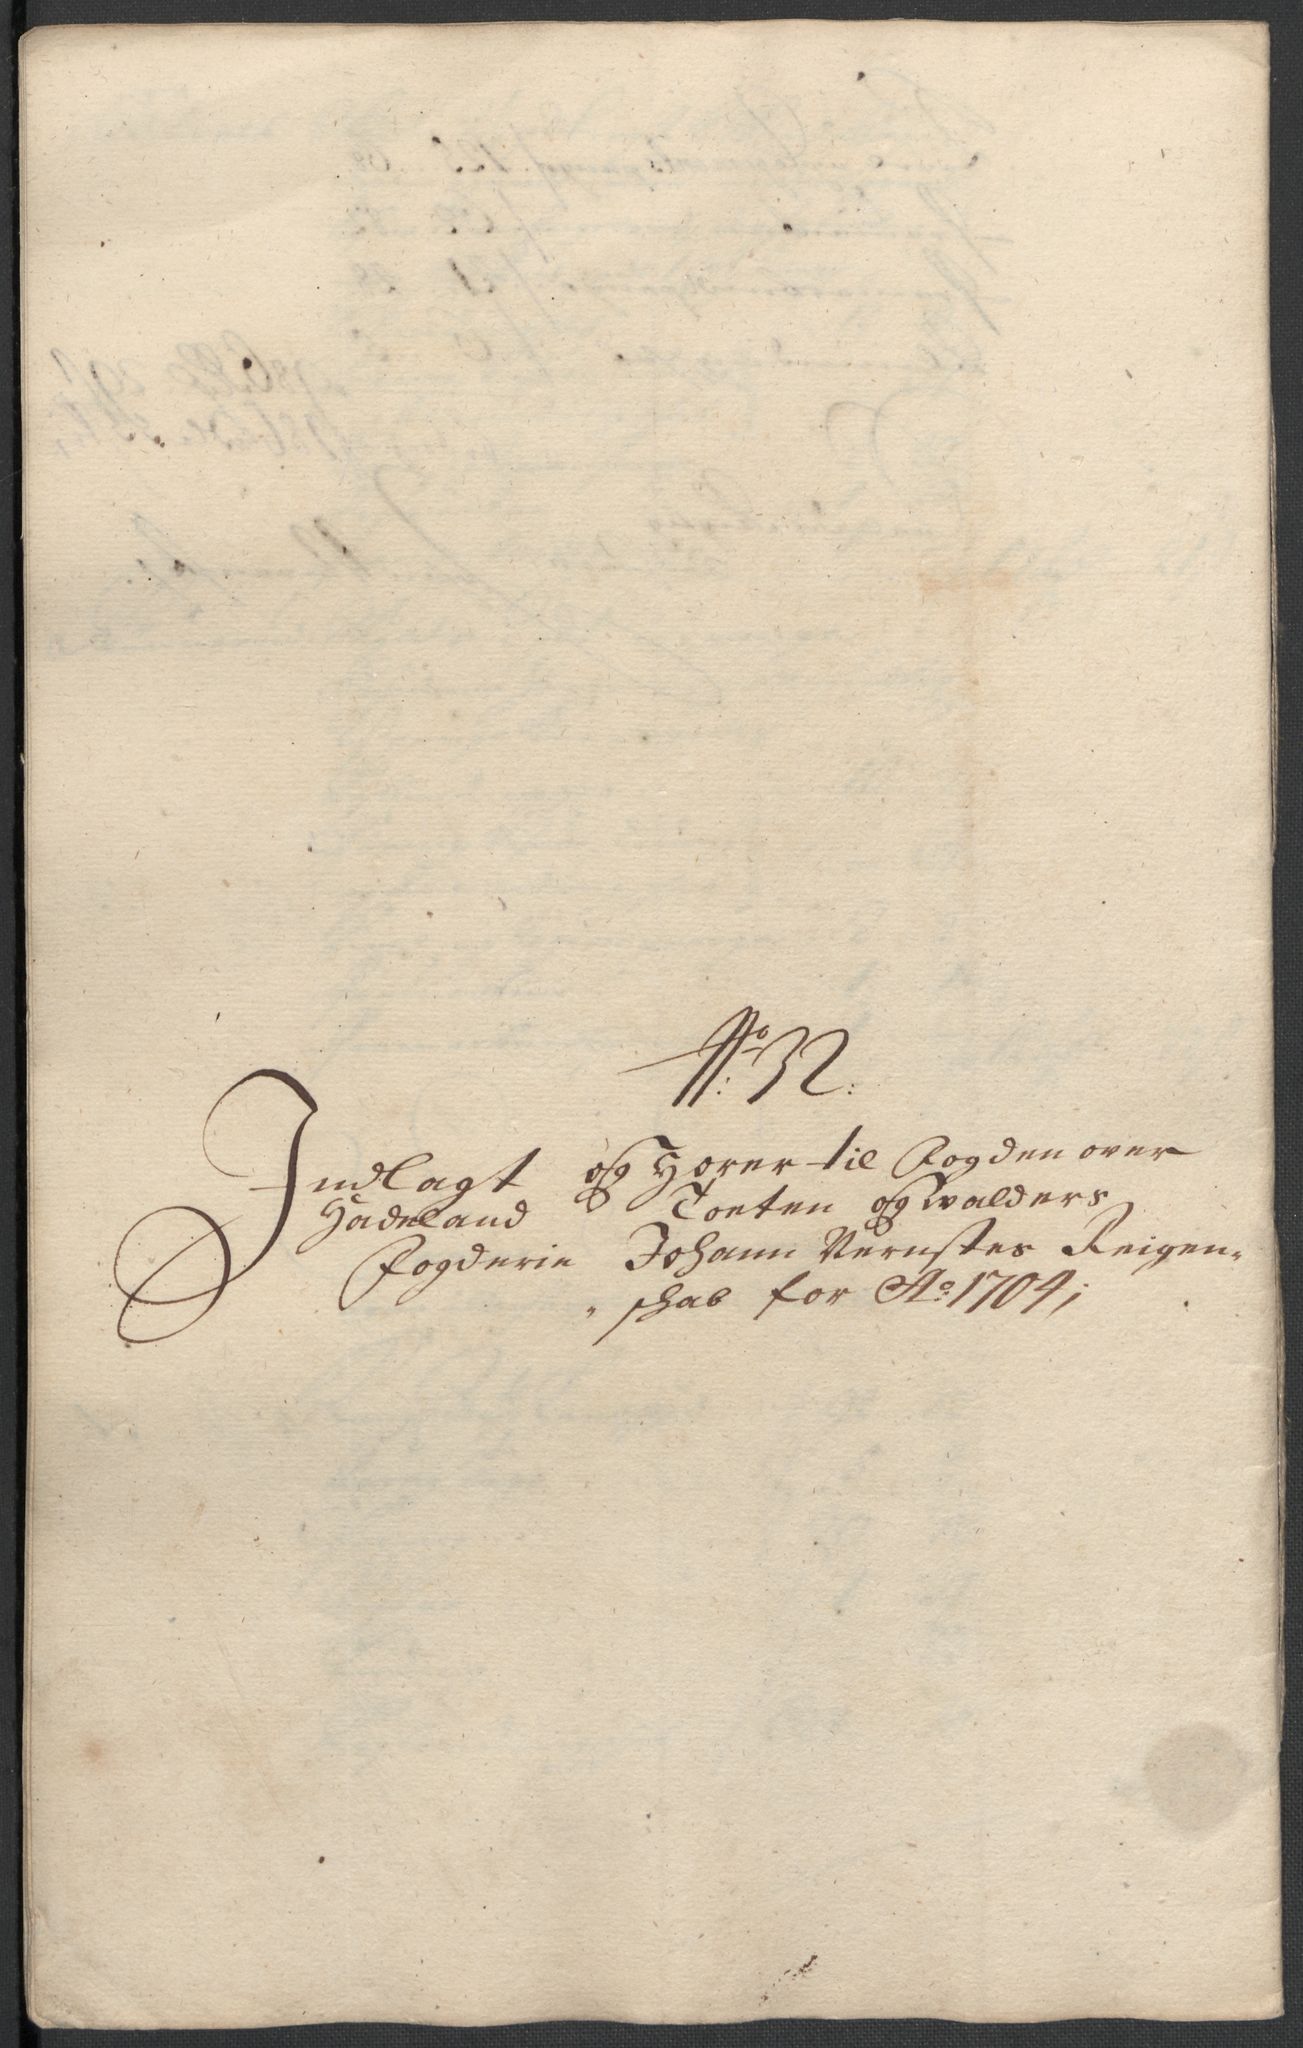 No: 32:
Indlagt og Hører til Fogden over
Hadeland Toeten og Walders
Fogderie Johann Vernstes Reigen-
-schab for Ao: 1704;